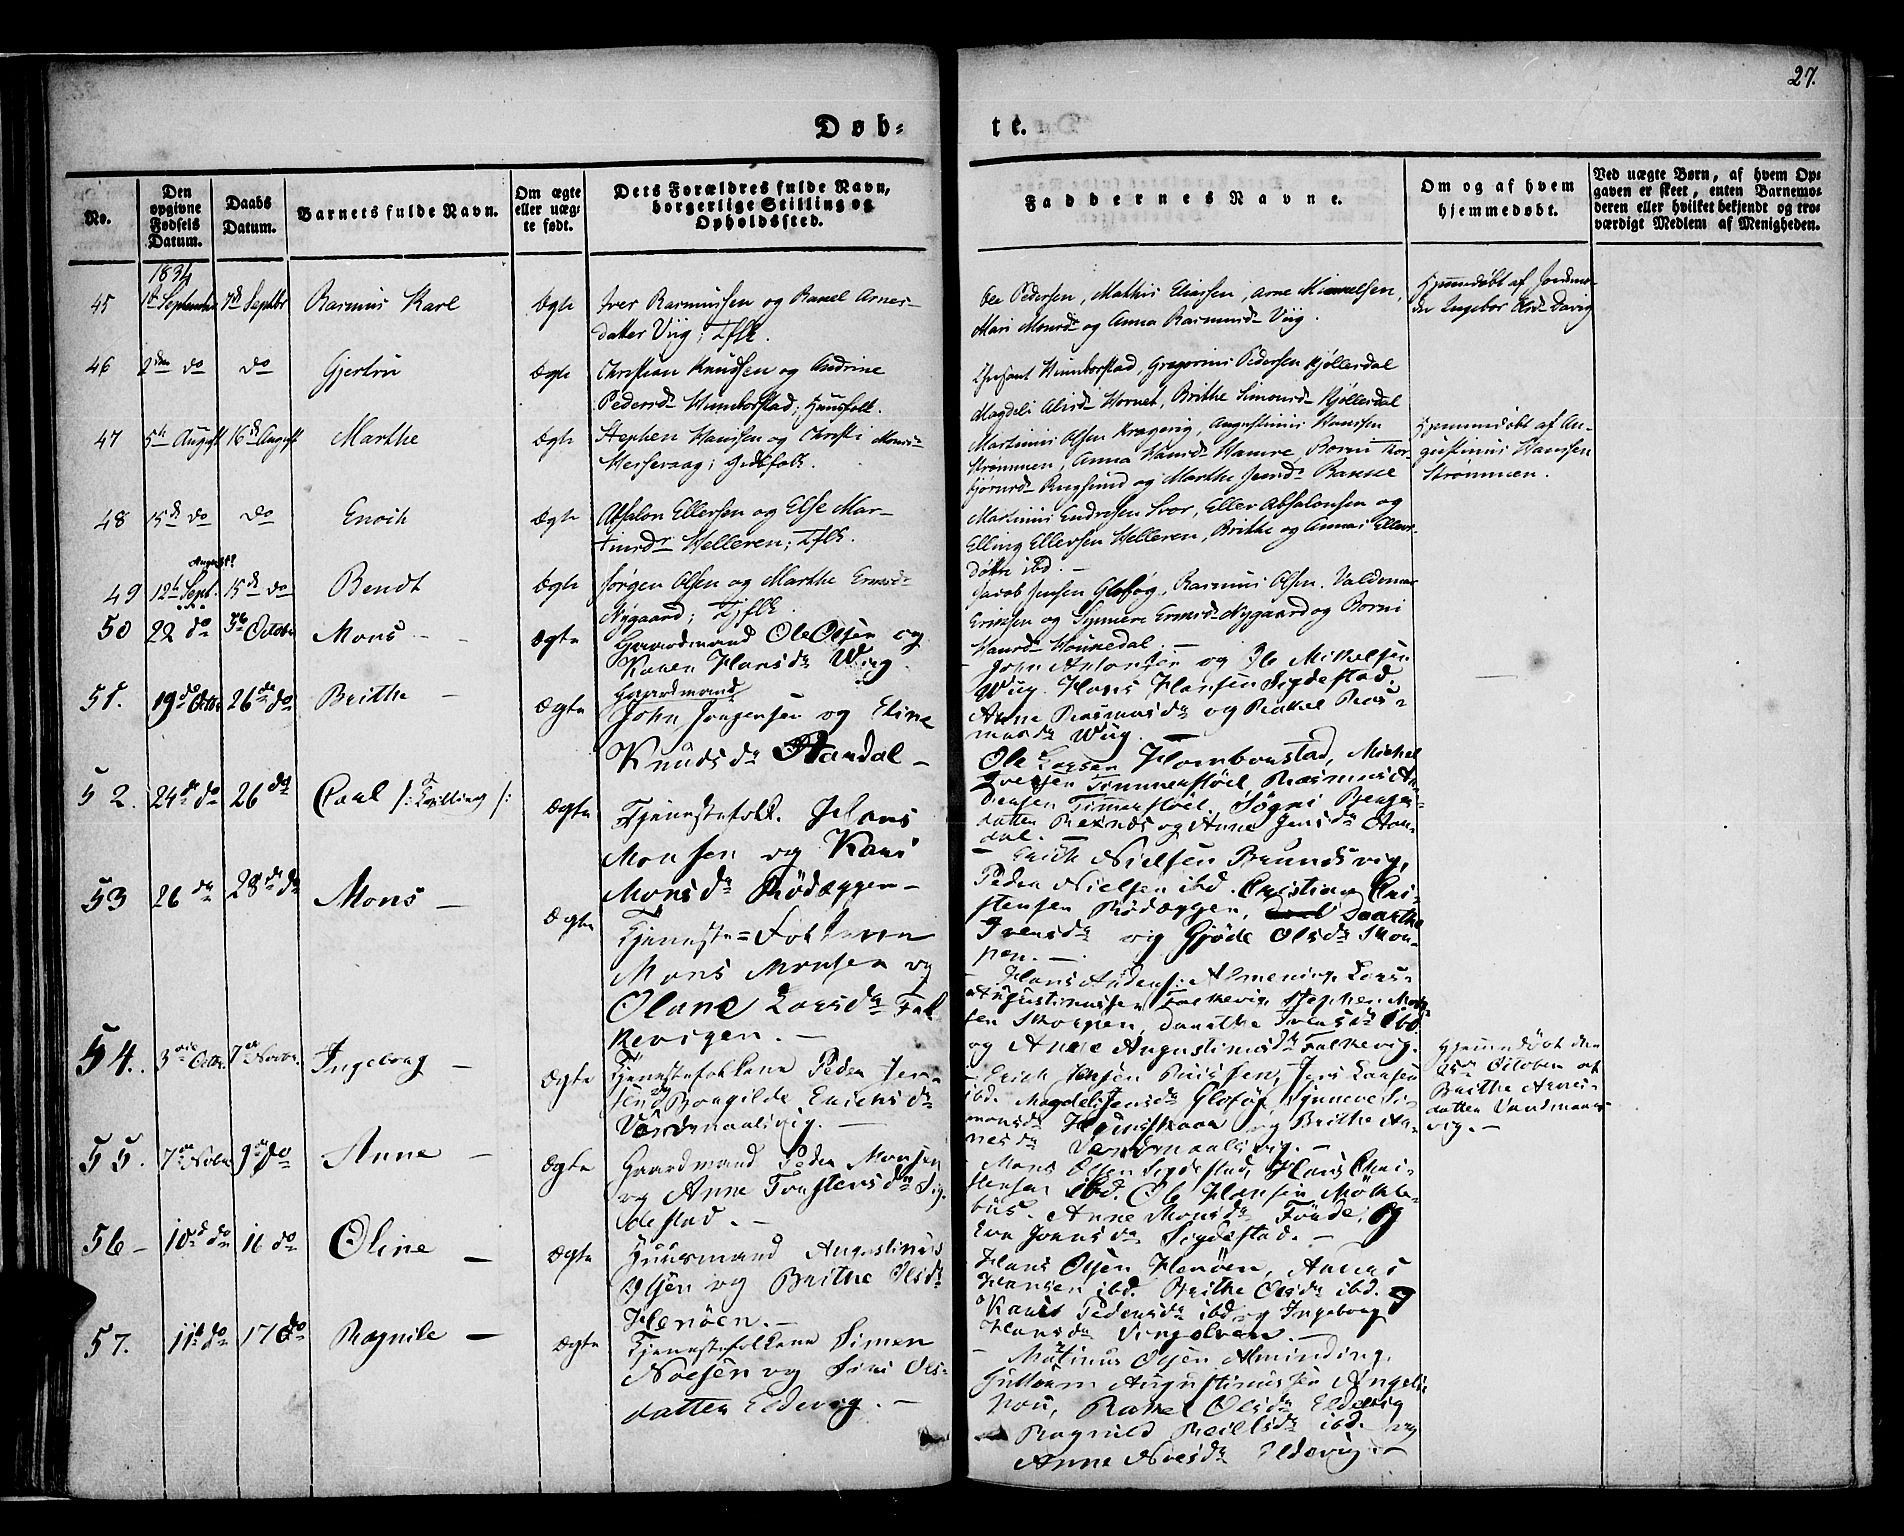 27.
Døb=
te.
No.
Den opgivne Fødsels Datum.
Daabs Datum.
Barnets fulde Navn.
Om ægte eller uægte født.
Dets Forældres fulde Navn, borgerlige Stilling og Opholdssted.
Faddernes Navne.
Om og af hvem hjemmedøbt.
Ved uægte Børn, af hvem Opgaven er skeet, enten Barnemoderen eller hvilket bekjendt og troværdigt Medlem af Menigheden.
1834
45 7de Septbr Rasmus Karl Ægte Iver Rasmussen og Rakel Arnes-
datter Viig; Tjflk.
Ole Pedersen, Mathis Eliassen, Arne Mikkelsen,
Mari Monsdr og Anna Rasmusdr Viig.
Hjemmedøbt af Jordmo-
der Ingebor
46 2den do do Gjertru Ægte Christian Knudsen og Andrine
Pedersdr Humborstad; Huusfolk.
Humborstad, Gregorius Pedersen Kjøllesdal
Magdeli Hornet, Brithe Simonsdr Kjøllesdal
47 5te August 16de August Marthe Ægte Stephen Hanssen og Christi Monsdr
Hessevaag; Gdkfolk.
Martinus Olsen Kragevig, Augustinus Hanssen
Strømmen, Anna Hansdr Hamre, Borni Tor-
bjørnsdr Rugsund og Marthe Jensdr
Hjemmedøbt af Au-
gustinus Hanssen
Strømmen.
48 15de do do Enoch Ægte Absalon Ellersen og Else Mar-
tinusdr Helleren; Tjflk.
Martinus Endresen Svor, Eller Absalonsen og
Elling Ellersen Helleren, Brithe og Anna Ellers-
døtre ibd. -
August?
49 12te Sept. 15de do Bendt Ægte Jørgen Olsen og Marthe
Nygaard; Tjflk.
Jacob Jensen Gloføg, Rasmus Olsen,
Ericksen og Synneve Nygaard og Borni
Hansdr Honnedal. -
50 22 do 5te October Mons - Ægte Gaardmand Ole Olsen og
Karen Hansdr Wiig.
- John Antonsen og Ole Mikkelsen
Wiig. Hans Hansen Sigdestad.
Anne Rasmusdr og Rakel Ras-
musdr Wiig. -
51. 19de Octbr 26de do Brithe - Ægte Gaardmand
John Jørgensen og Eline
Knudsdr Aandal -
Ole Larsen Homborstad, Mickel
Iversen Timmerstøel, Rasmus An-
densen Timmerstøel, Søgni
datter og Anne Jensdr Aan-
dal. -
52. 24de do 26 do Carl /: Tvilling /: Ægte Tjenestefolk. Hans
Monsen og Kari
Monsdr Rödæggen -
- Erich Nielsen Brundsvig,
Peder Nielsen ibd. Cristian Cri-
stensen Rödæggen, Daarthe
Iversdr og Gjøde Olsdr Skor-
pen. -
53 26 do 28de do Mons - Ægte Tjeneste=Folkene
Mons Monsen og
Olane Larsdr Fal
kevigen. -
Hans Almening, Lars
Augustinussen Falkevig, Stephen Mon-
sen Skorpen, Daarthe Iversdr ibd
og Anne Augustinusdr Falkevig.
54. 3die Octbr. 7de Novbr. Ingeborg - Ægte Tjenestefolkene Peder Jen-
sen og Borgilde Erichsdr
Vordemaalsvig. -
- Erich Jensen Jens Larsen
ibd. Magdeli Jensdr Gloføg, Synneve Si-
monsdr og Brithe Ar-
nesdr Vordemaalsvig. -
Hjemmedöbt den
25de October af
Brithe Arnes-
datter
vig. -
55. 7de Novbr 9de do Anne - Ægte Gaardmand Peder Monsen
og Anne Torstensdr Sig-
destad. -
Mons Olsen Sigdestad, Hans Chri-
stensen ibd. Ole Hansen Mökle-
bus. Anne Monsdr Förde, og
Eva Joensdr Sigdestad. -
56 - 10de do 16 do Oline - Ægte Huusmand Augustinus
Olsen og Brithe Olsdr
Henöen. -
Hans Olsen Henöen, Annas
Hansen ibd. Brithe Olsdr ibd.
Kari Pedersdr ibd og Ingeborg
Hansdr Vingelven. -
57. 11te do 17de do Ragnile - Ægte Tjenestefolkene Simen
Noesen og Sini Ols-
datter Eldevig. -
- Matinus Olsen Alminding,
Guttorm Augustinussen
Rakel Olsdr Eldevig
Ragnild ibd. og
Anne Noesdr Eldevig. -